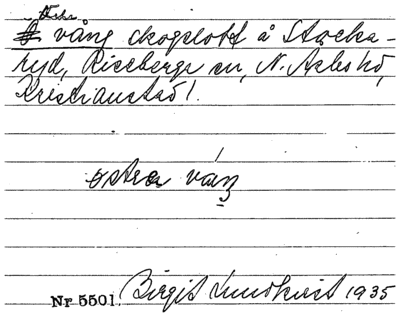 Östra
vång skogslott å Stocka-
ryd, Riseberga sn, N. Åsbo hd,
Kristianstad l.
östra váŋ
Nr 5501. Birgit Lundkvist 1935